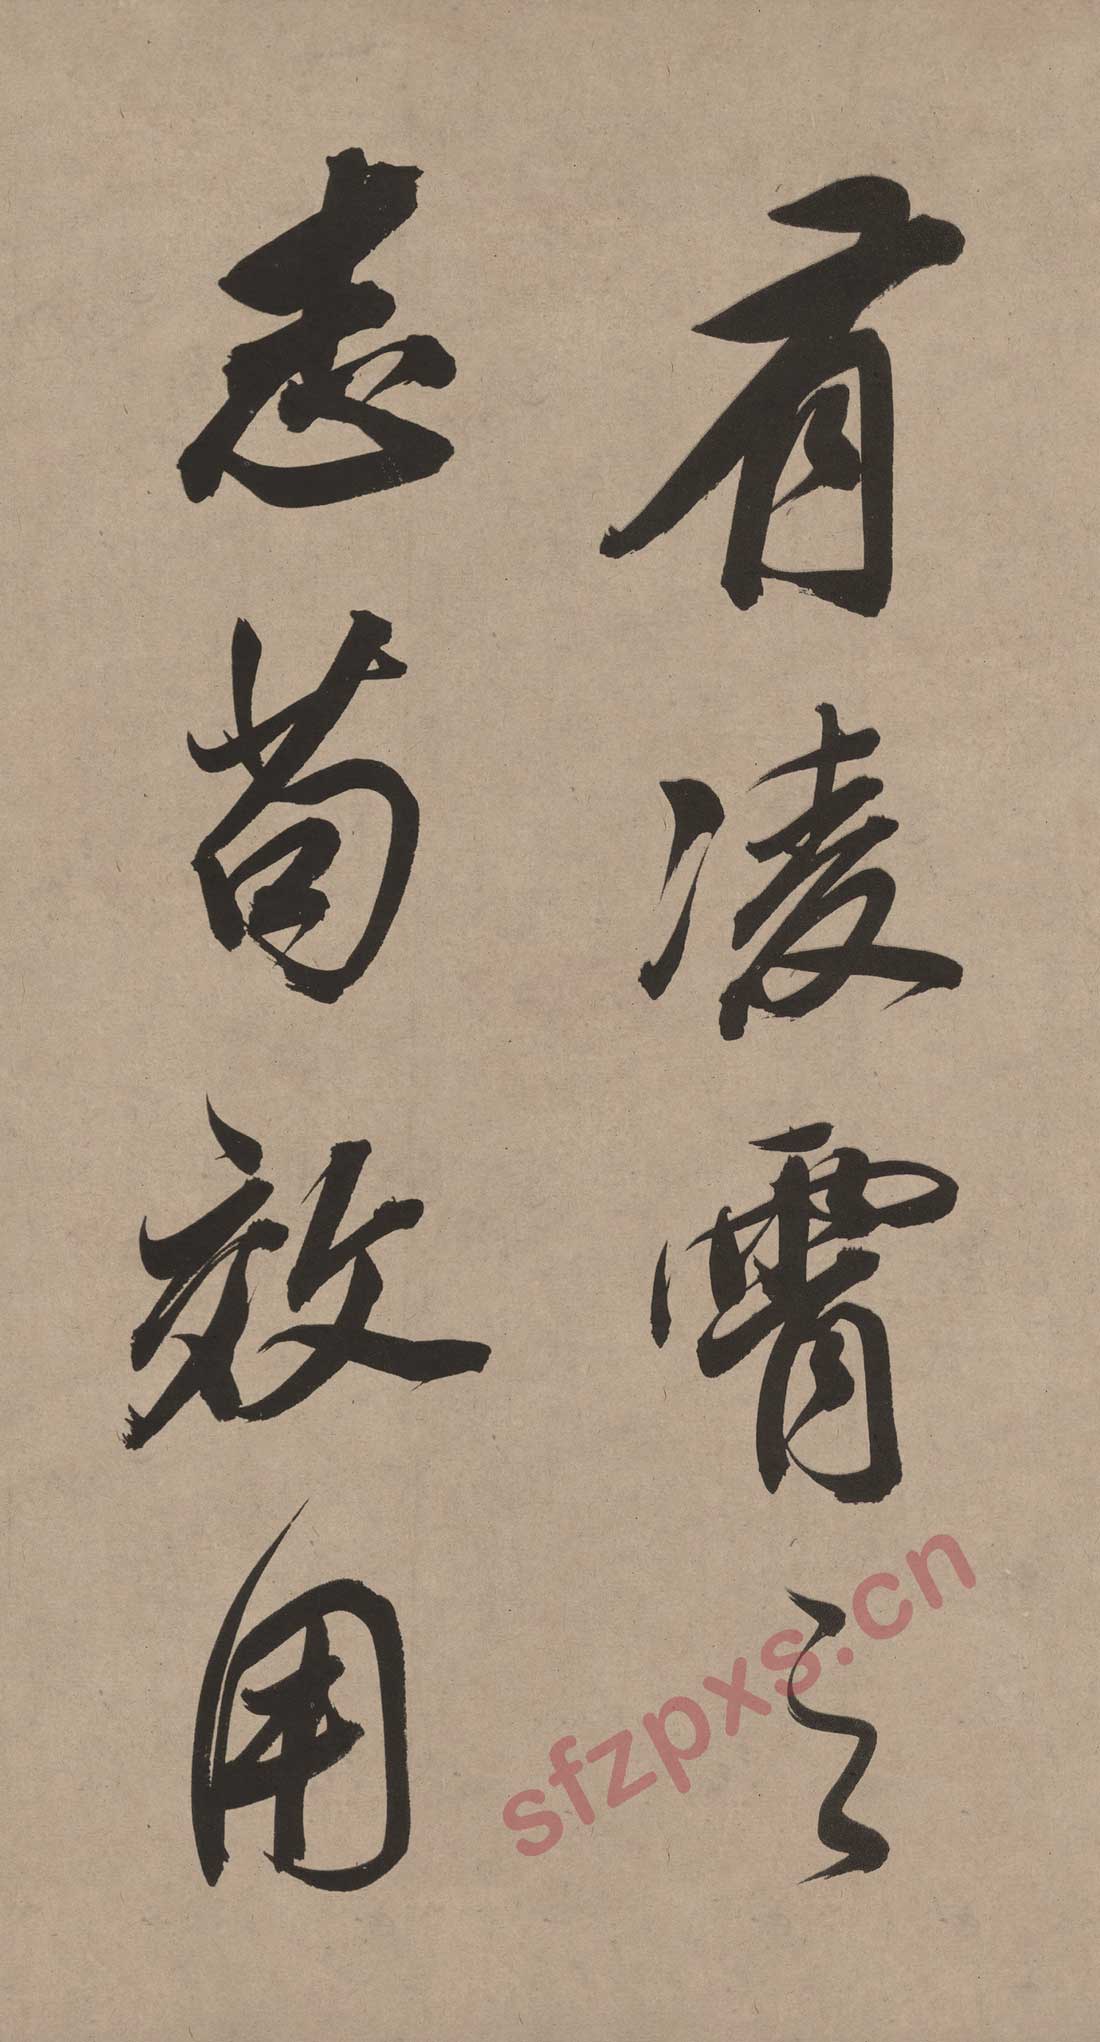 有凌霄之
志苟效用
sfzpxs.cn